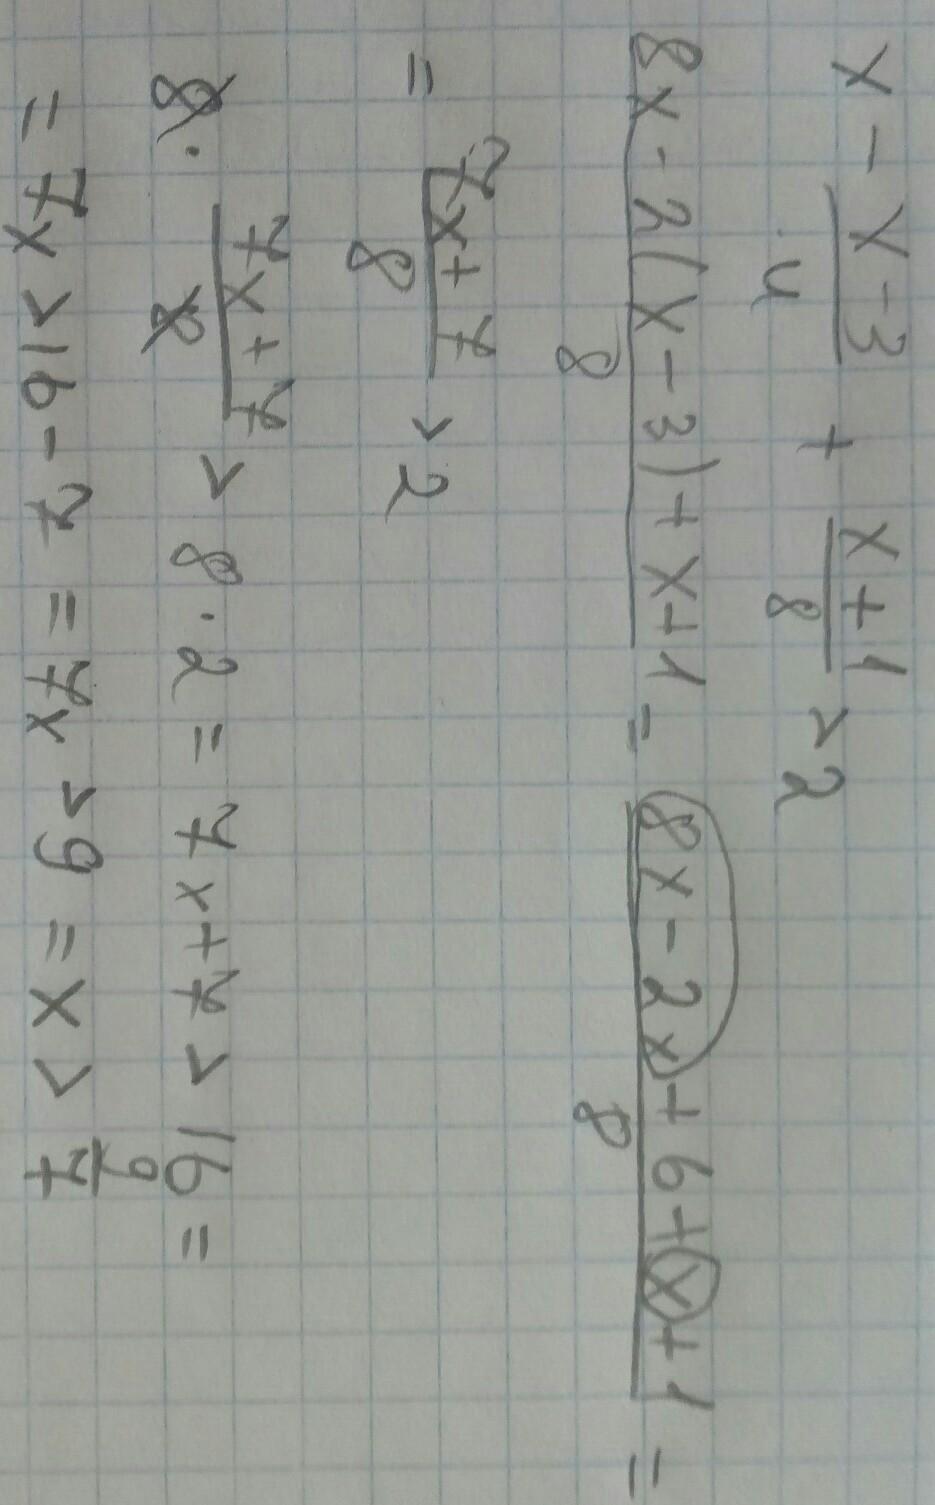 x - \frac{x-3}{4} + \frac{x+1}{8} > 2
\frac{8x-2(x-3)+x+1}{8} = \frac{8x-2x+6+x+1}{8} =
= \frac{7x+7}{8} > 2
8 · \frac{7x+7}{8} > 8 · 2 = 7x+7 > 16 =
= 7x > 16-7 = 7x > 9 = x > \frac{9}{7}